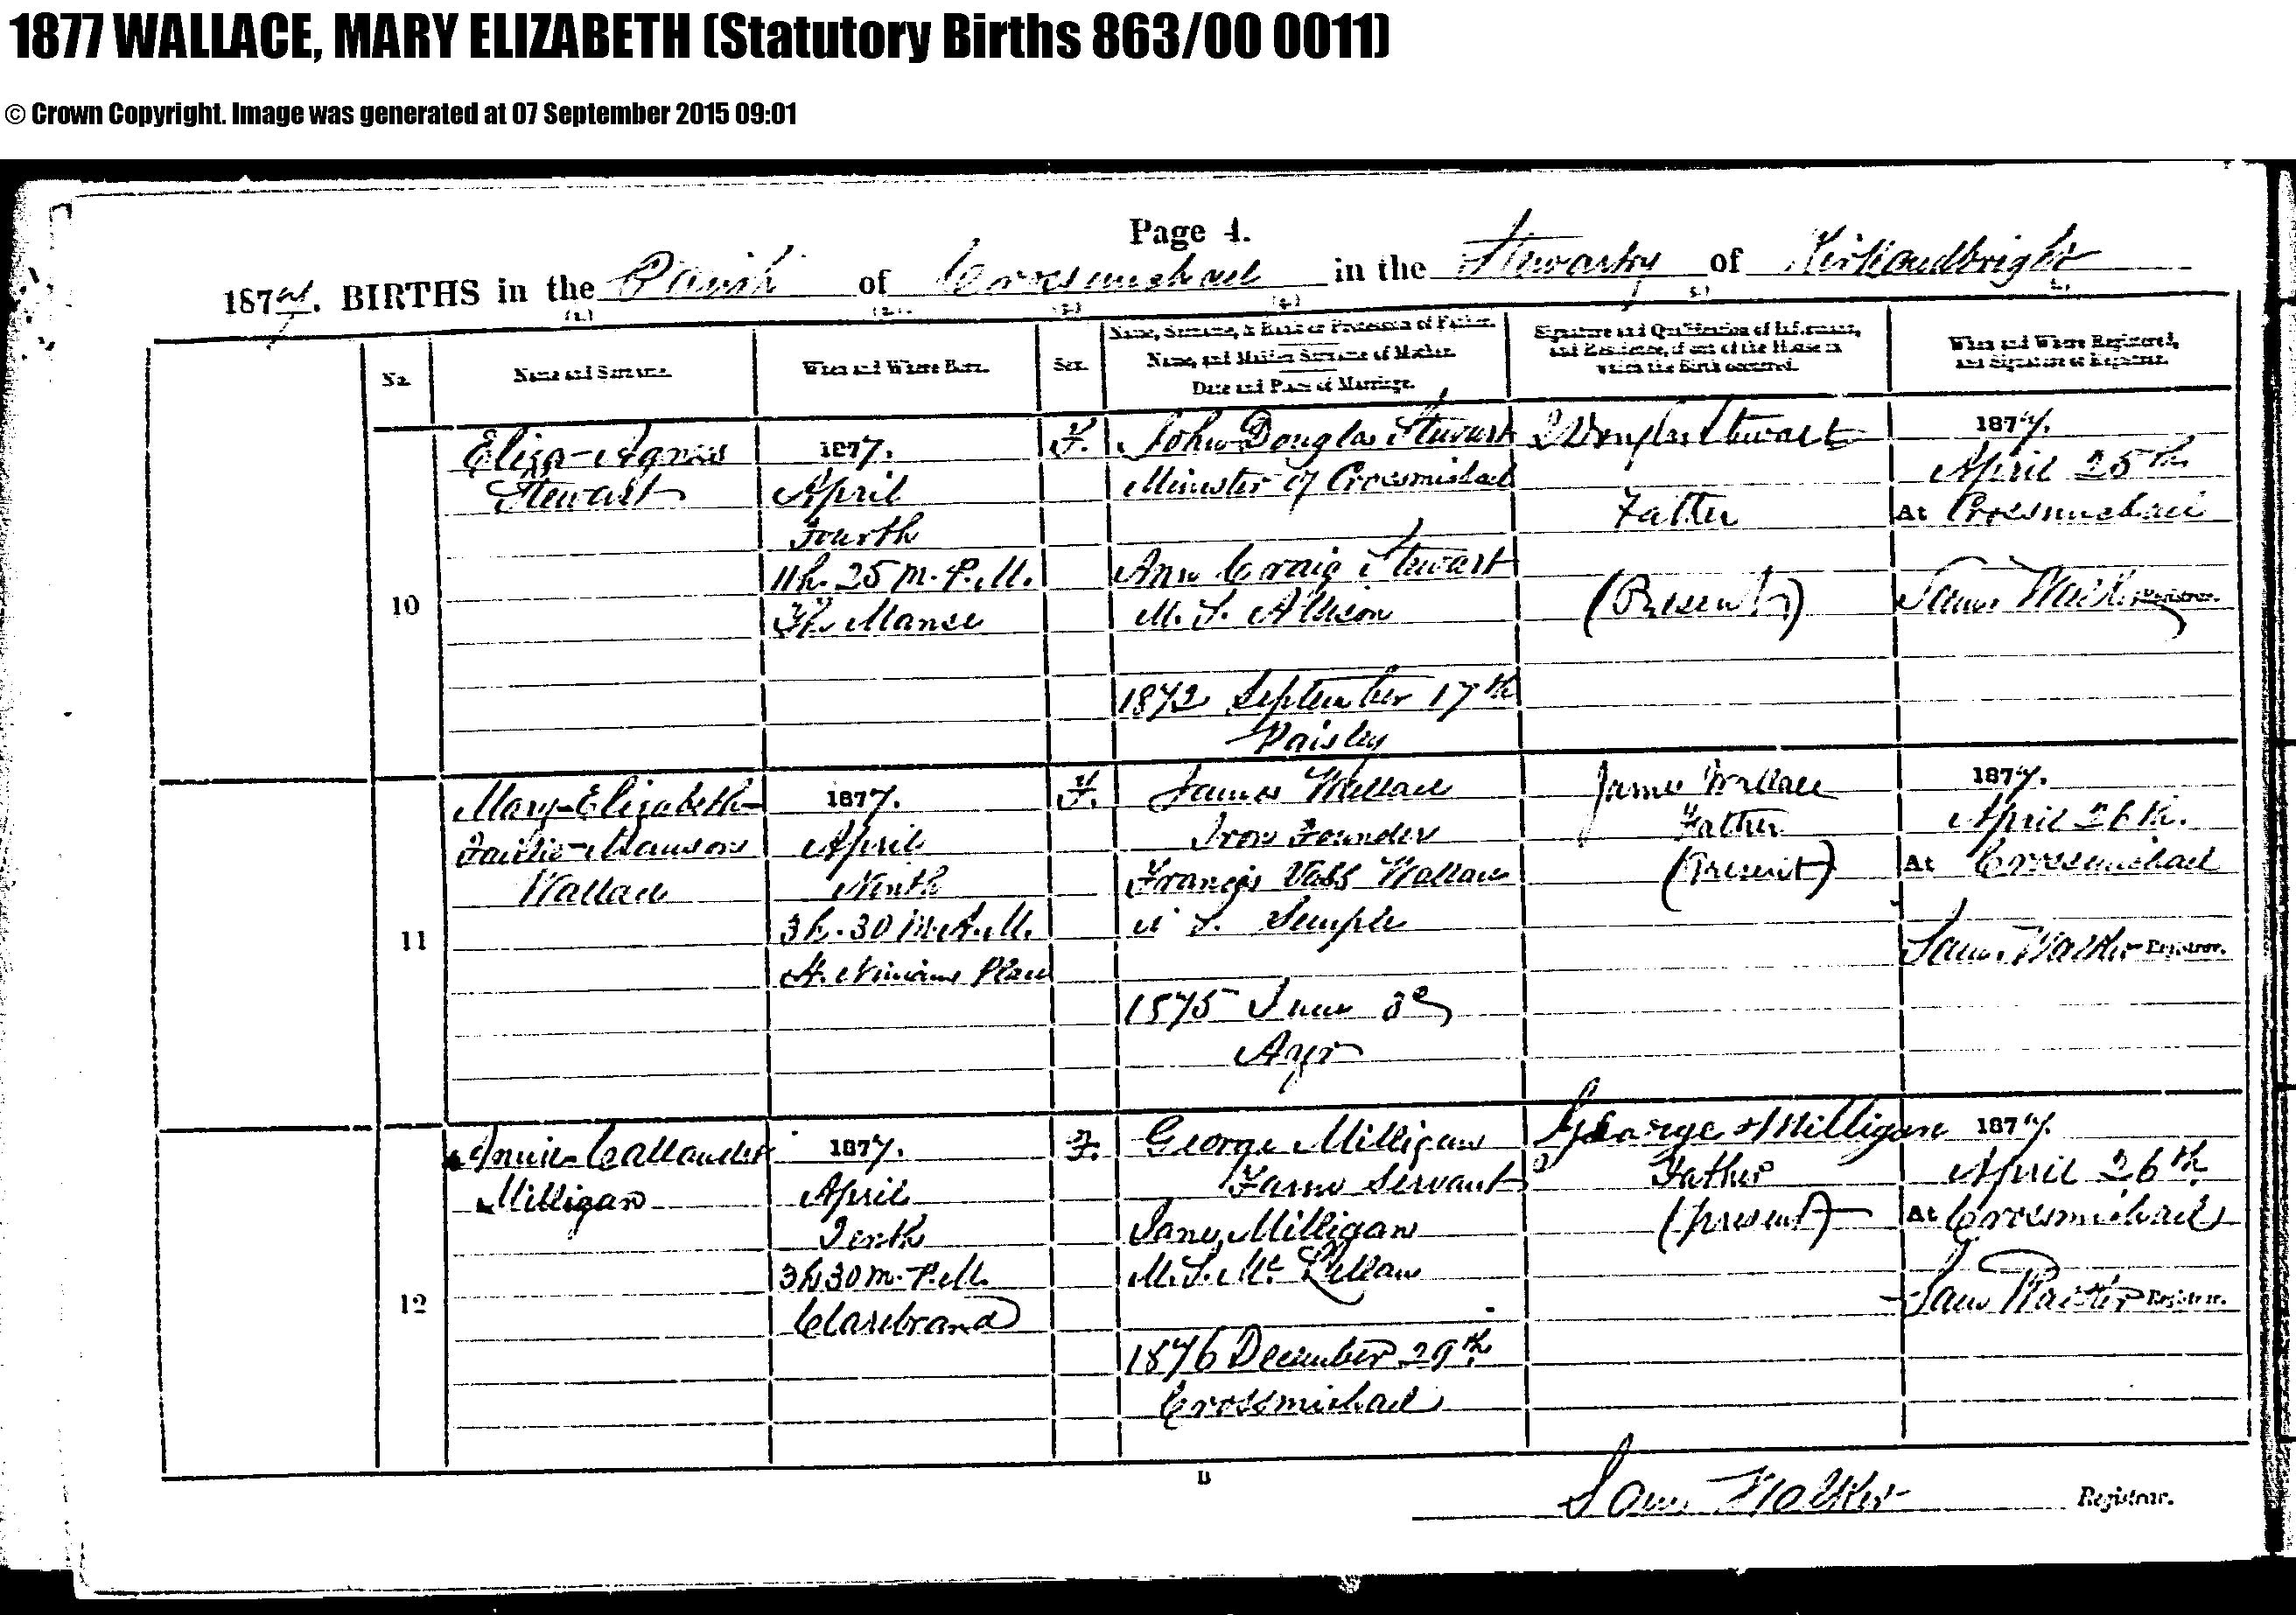 1877 WALLACE, MARY ELIZABETH (Statutory Births 863/00 0011)
© Crown Copyright. Image was generated at 07 September 2015 09:01
Page 4.
1877. BIRTHS in the Parish of Crossmichael in the Stewartry of Kirkcudbright
(1.) (2.) (3.) (4.) (5.)
No.
Name and Surname.
When and Where Born.
Sex.
Name, Surname, & Rank or Profession of Father.
Name, and Maiden Surname of Mother.
Date and Place of Marriage.
Signature and Qualification of Informant,
and Residence, if out of the House in
which the Birth occurred.
When and Where Registered,
and Signature of Registrar.
10
Eliza-Agnes
Stewart
1877.
April
Fourth
11h. 25 m. P.M.
The Manse
F.
John Douglas Stewart
Minister of Crossmichael
Ann Craig Stewart
M. S. Allison
1872 September 17th
Paisley
Douglas Stewart
Father
(Present)
1877.
April 25th
At Crossmichael
Saml. Walker Registrar.
11
Mary-Elizabeth-
Wallace
1877.
April
Ninth
3h. 30 m. A.M.
St. Ninians Place
F.
James Wallace
Iron Founder
Francis Wallace
M. S. Semple
1875 June
Ayr
James Wallace
Father
(Present)
1877.
April 26th.
At Crossmichael
Saml. Walker Registrar.
12
Annie-Callander
Milligan
1877.
April
Tenth
3h 30 m. P.M.
Clarebrand
F.
George Milligan
Farm Servant
Jane Milligan
M. S. Mc Lellan
1876 December 29th
Crossmichael
George Milligan
Father
(present)
1877.
April 26th
At Crossmichael
Saml. Walker Registrar.
B
Saml. Walker Registrar.